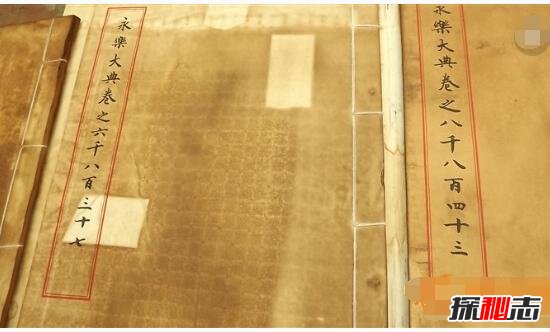 永樂大典卷之六千八百三十七
永樂大典卷之八千八百四十三
探秘志